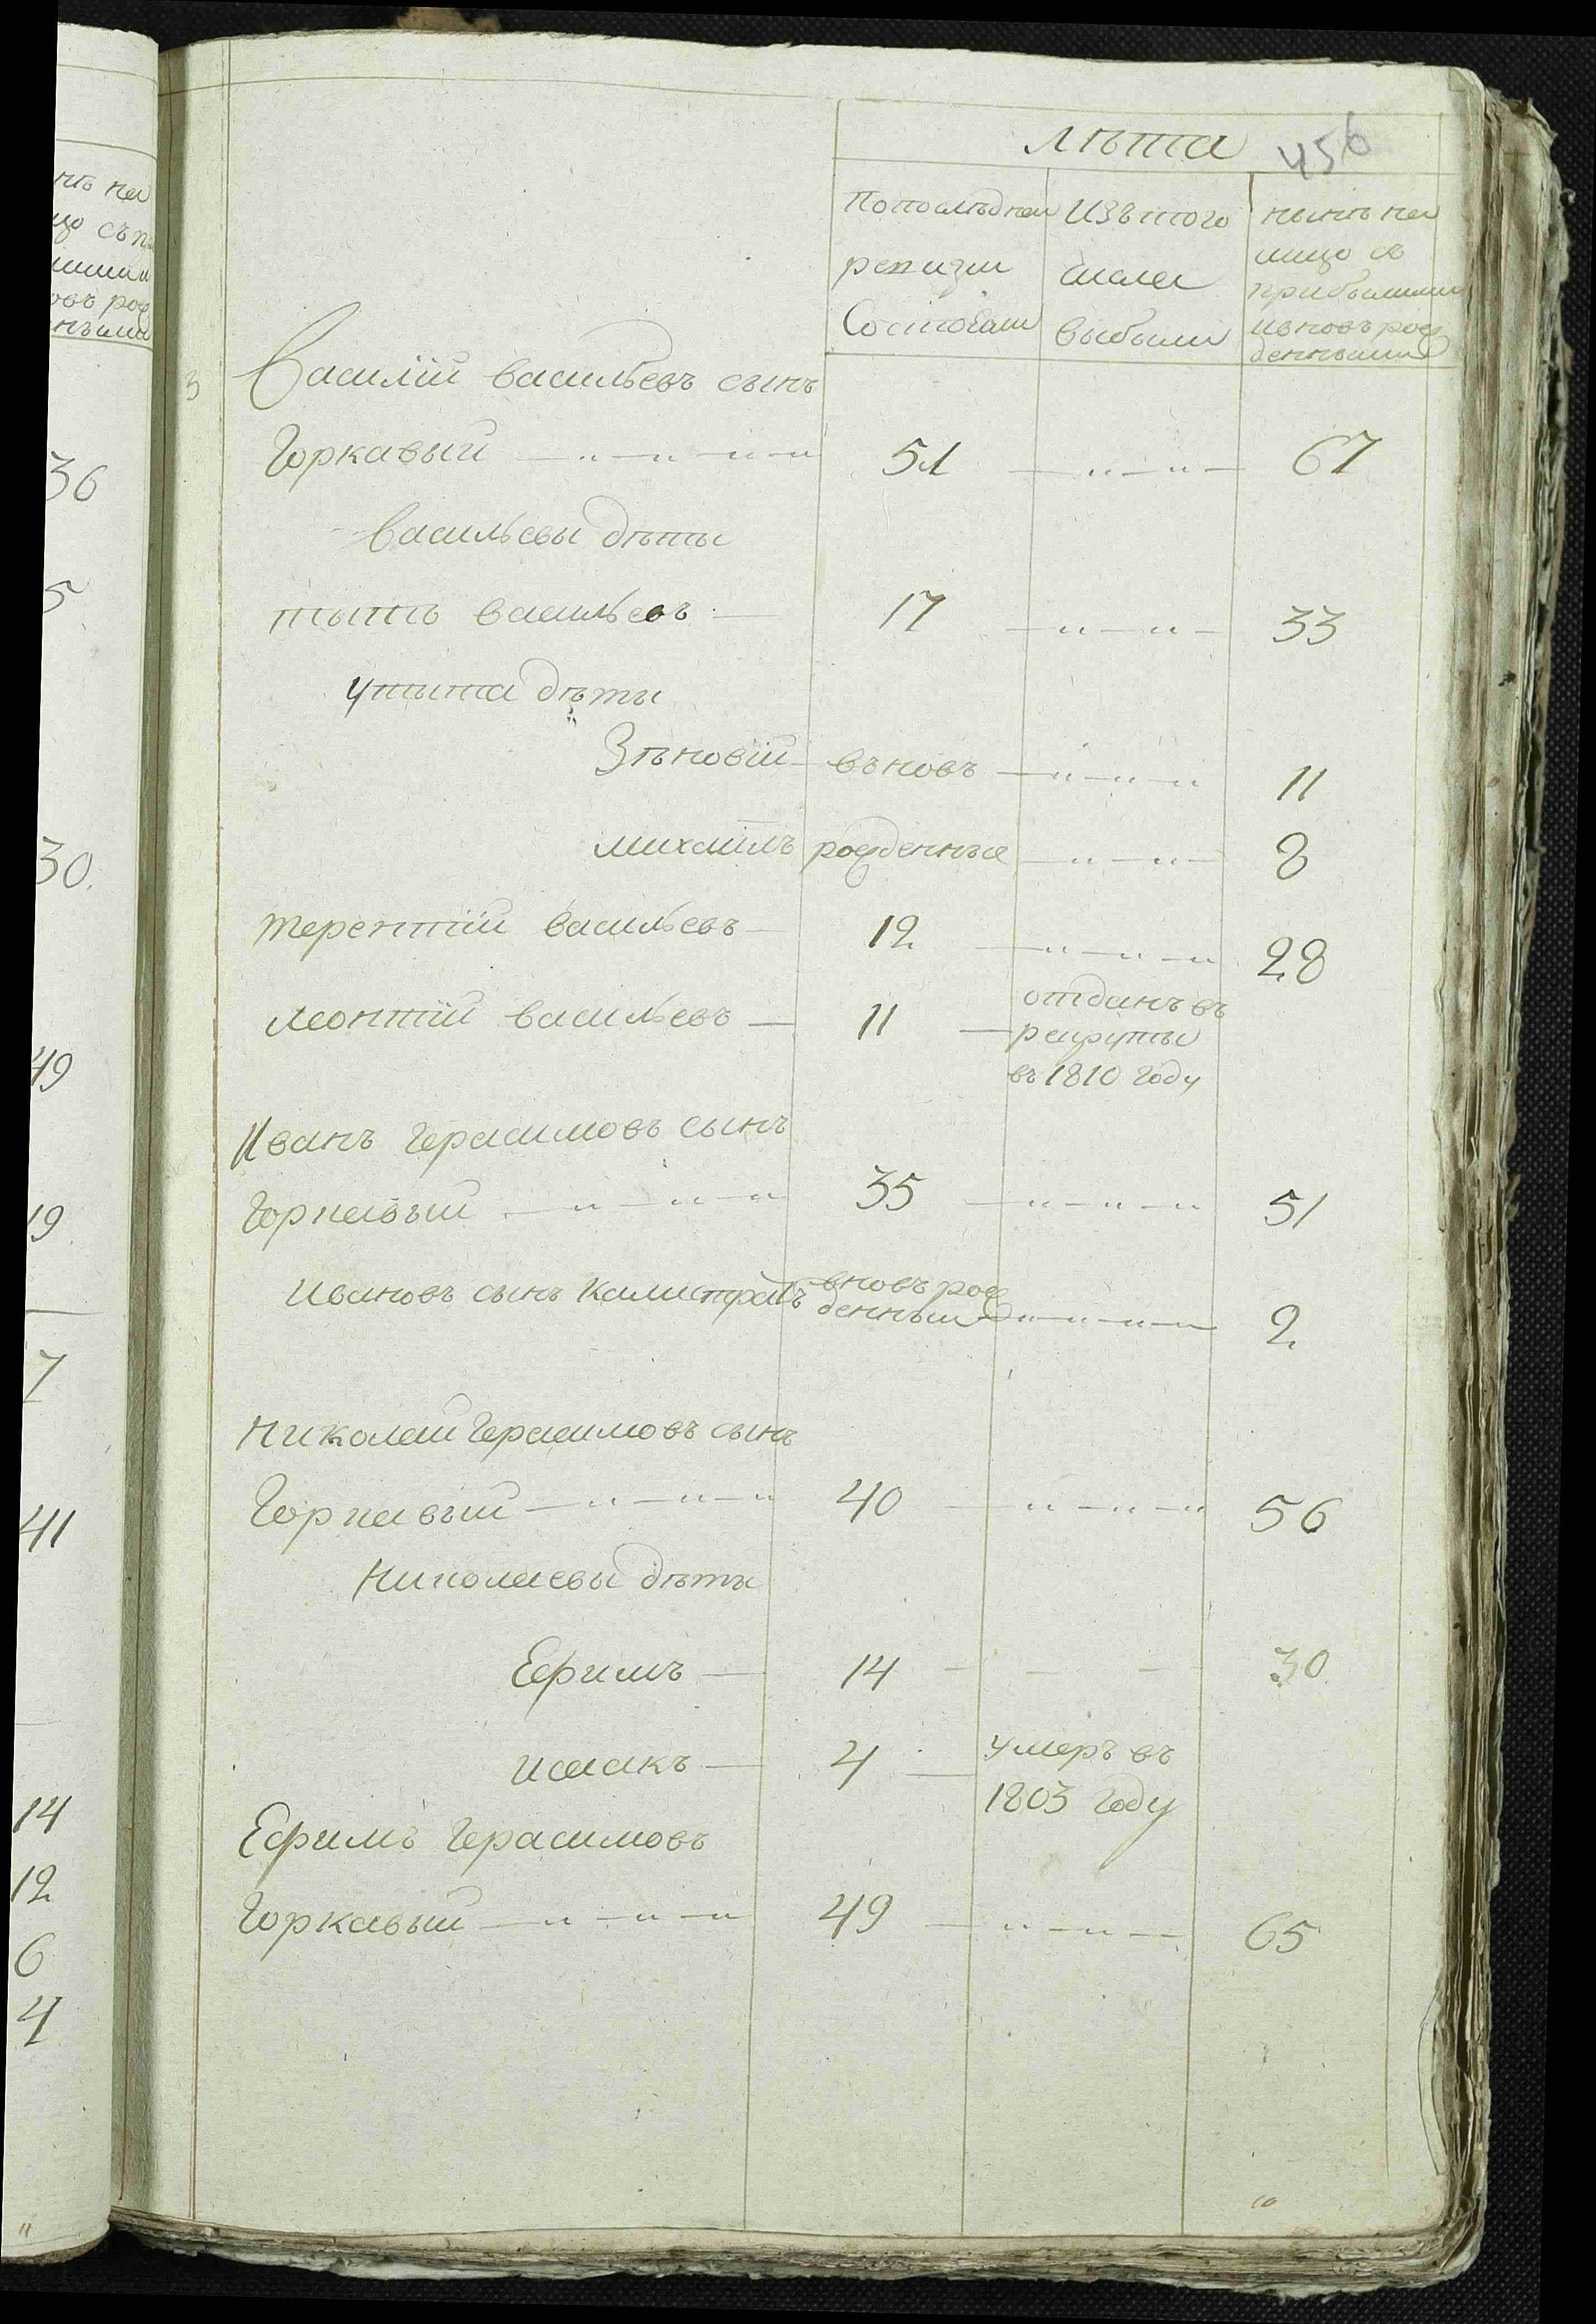 лѣта 456
По послѣдней ревизіи Состояли
Изъ того числа выбыли
нынѣ на лицо съ прибылыми и вновь рожденными
3 Василій васильевъ сынъ
Горкавый — „ — „ — „ — „ 51 — „ — „ — 67
васильевы дѣти
тытъ васильевъ — 17 — „ — „ — 33
у тыта дѣти
Зѣновій — вновь — „ — „ — „ 11
михаилъ рожденные — „ — „ — 8
терентій васильевъ — 12 — „ — „ — „ 28
леонтій васильевъ — 11 — отданъ въ
рекруты
въ 1810 году
Иванъ герасимовъ сынъ
Горкавый — „ — „ — „ 35 — „ — „ — „ 51
Ивановъ сынъ Калистратъ вновь рож
денный — „ — „ — „ — 2
Николай Герасимовъ сынъ
Горкавый — „ — „ — „ 40 — „ — „ — „ 56
Николаевы дѣти
Ефимъ — 14 — — — 30
исаакъ — 4 — умеръ въ
1803 году
Ефимъ Герасимовъ
Горкавый — „ — „ — „ 49 — „ — „ — 65
10
36
5
30.
49
19
7
41
14
12
6
4
11